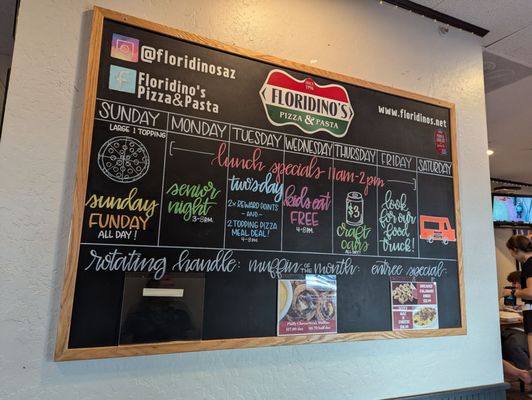 @floridinosaz
Floridino's
Pizza&Pasta
SINCE
1996
FLORIDINO'S
PIZZA & PASTA
www.floridinos.net
SUNDAY
MONDAY
TUESDAY
WEDNESDAY
THURSDAY
FRIDAY
SATURDAY
lunch specials 11am-2pm
LARGE 1 TOPPING
sunday
FUNDAY
ALL DAY!
senior
night
3-8PM
twosday
2x REWARD POINTS
- AND -
2-TOPPING PIZZA
MEAL DEAL!
4-8PM
kids eat
FREE
4-8PM
$3
craft
cans
look
for our
food
truck!
rotating handle:
muffin OF THE month
entree special:
Philly Cheesesteak Muffins